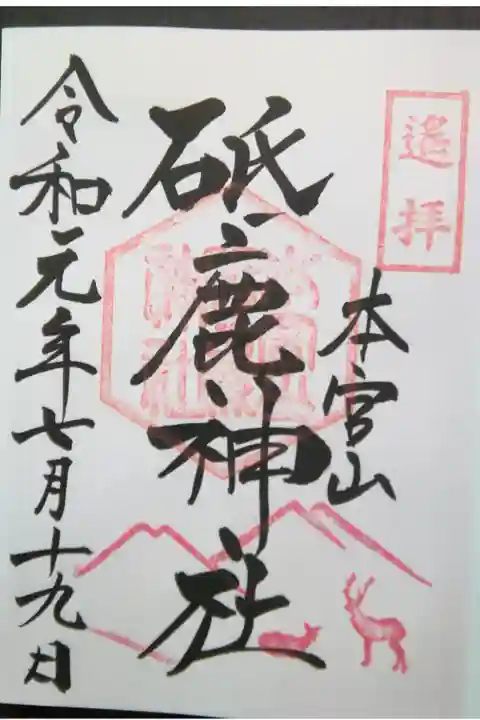 遥拝
本宮山
砥鹿神社
令和元年七月十九日